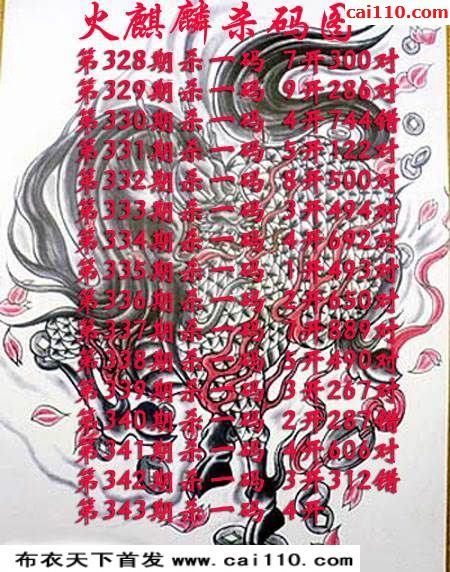 cai110.com
火麒麟杀码图
第328期杀一码 7开300对
第329期杀一码 9开286对
第330期杀一码 4开744错
第331期杀一码 5开122对
第332期杀一码 8开500对
第333期杀一码 3开494对
第334期杀一码 4开692对
第335期杀一码 1开493对
第336期杀一码 2开650对
第337期杀一码 1开889对
第338期杀一码 5开490对
第339期杀一码 3开267对
第340期杀一码 2开287错
第341期杀一码 4开606对
第342期杀一码 3开312错
第343期杀一码 4开
布衣天下首发 www.cai110.com